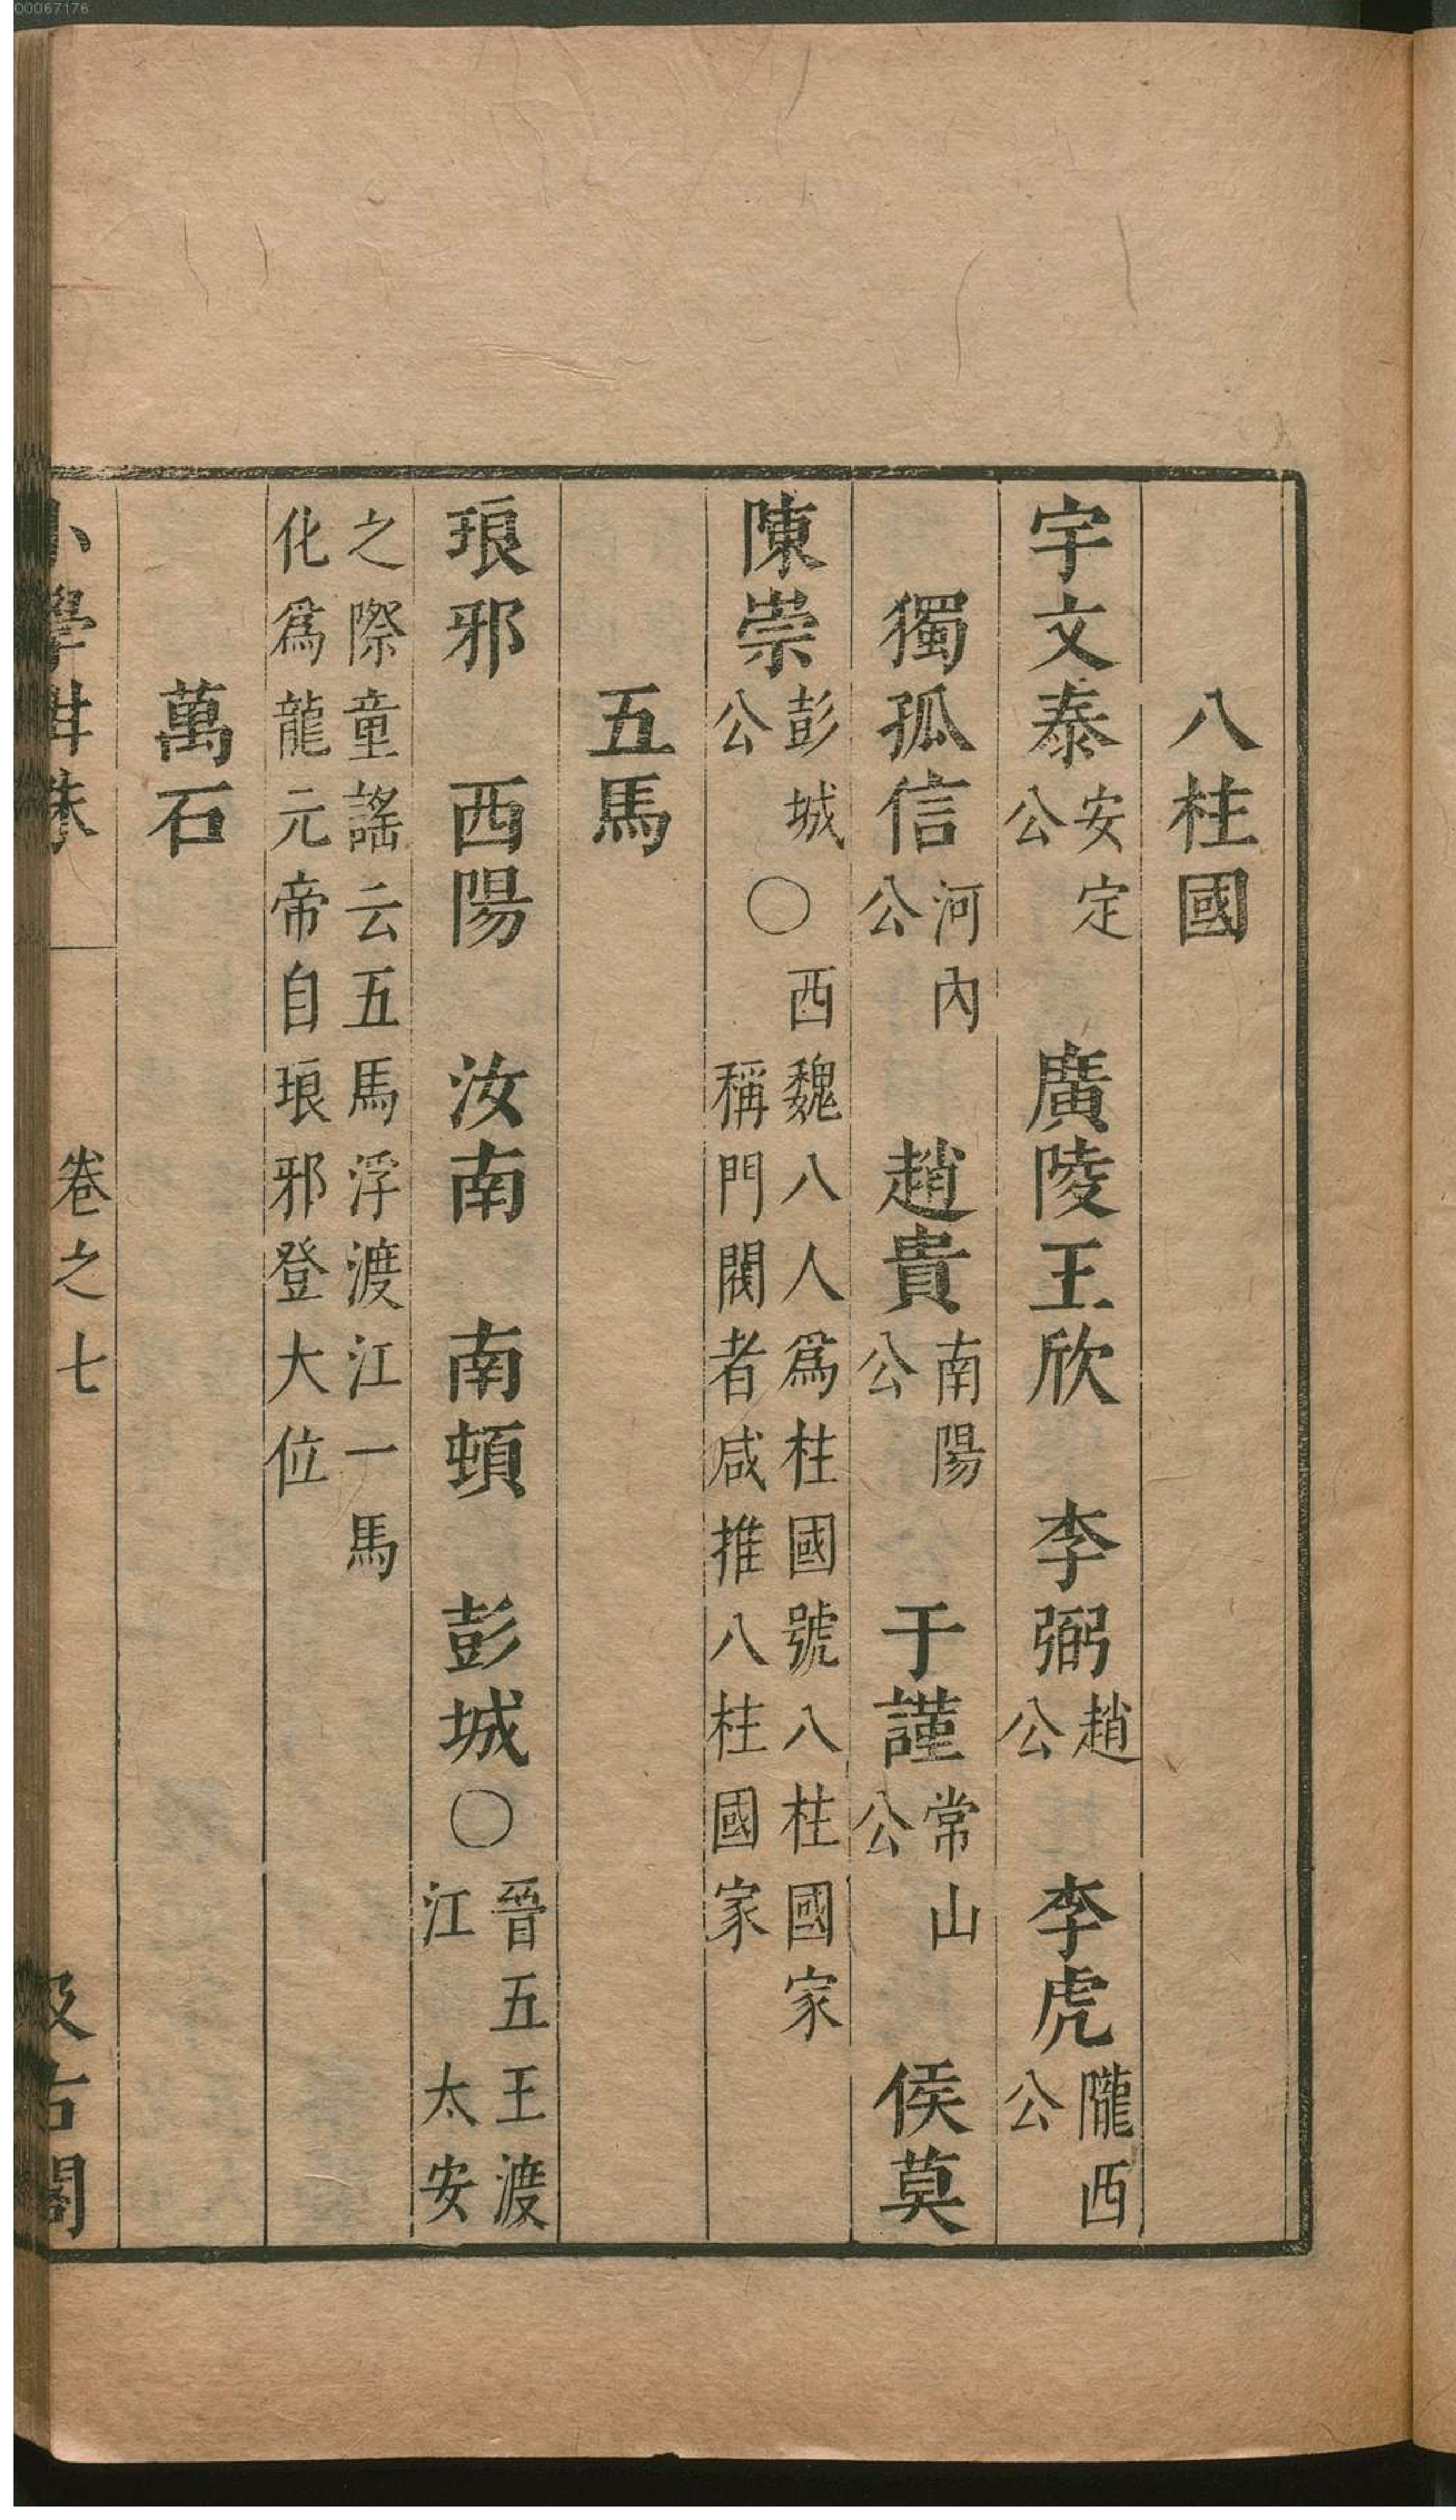 00067176
八柱國
宇文泰安定公 廣陵王欣 李弼趙公 李虎隴西公
獨孤信河內公 趙貴南陽公 于謹常山公 侯莫
陳崇彭城公〇西魏八人爲柱國號八柱國家稱門閥者咸推八柱國家
五馬
琅邪 西陽 汝南 南頓 彭城〇晉五王渡江太安
之際童謠云五馬浮渡江一馬化爲龍元帝自琅邪登大位
萬石
小學紺珠 卷之七 汲古閣